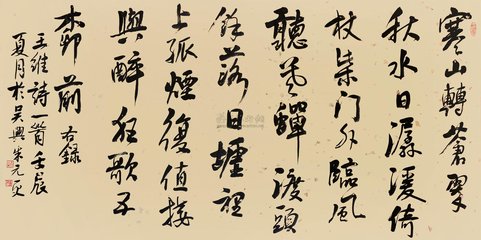 寒山轉蒼翠
秋水日潺湲倚
杖柴門外臨風
聽暮蟬渡頭
餘落日墟裡
上孤煙復值接
輿醉狂歌五
柳前 右錄
王維詩一首壬辰
夏月於吳興朱元更